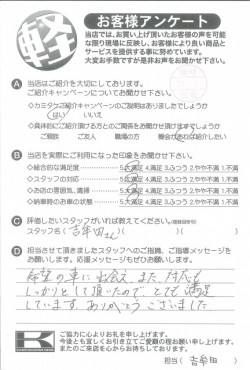 軽
お客様アンケート
当店では、お買い上げ頂いたお客様の声を可能
な限り現場に反映し、お客様により良い商品と
サービスを提供する事に努めています。
大変お手数ですが是非お声をお聞かせ下さい。
A 当店はご紹介を大切にしております。
ご紹介キャンペーンについてお聞かせ下さい。
◇カミタケご紹介キャンペーンのご説明はありましたでしょうか
はい いいえ
◇具体的にご紹介頂ける方とのご関係をお聞かせ頂けますか
ご親戚 ご友人 職場の方 ご家族 その他( )
B 当店を実際にご利用になった印象をお聞かせ下さい。
◇総合的な満足度 5.大満足 4.満足 3.ふつう 2.やや不満 1.不満
◇スタッフの対応 5.大満足 4.満足 3.ふつう 2.やや不満 1.不満
◇お店の雰囲気、清掃 5.大満足 4.満足 3.ふつう 2.やや不満 1.不満
◇納車時のお車の状態 5.大満足 4.満足 3.ふつう 2.やや不満 1.不満
C 評価したいスタッフがいれば教えてください。
スタッフ名( 吉牟田さん )( )
D 担当させて頂きましたスタッフへのご指摘、ご指導メッセージを
お願いします。応援メッセージもぜひお願いします。
希望の車に出会え、また、対応も
しっかりとして頂いたので、とても満足
しています。ありがとうございました。
K
ご協力に心よりお礼を申し上げます。
今後とも宜しくお引き立てご愛顧の程お願い申し上げます。
またのご来店を心からお待ちしております。
担当( 吉牟田 )